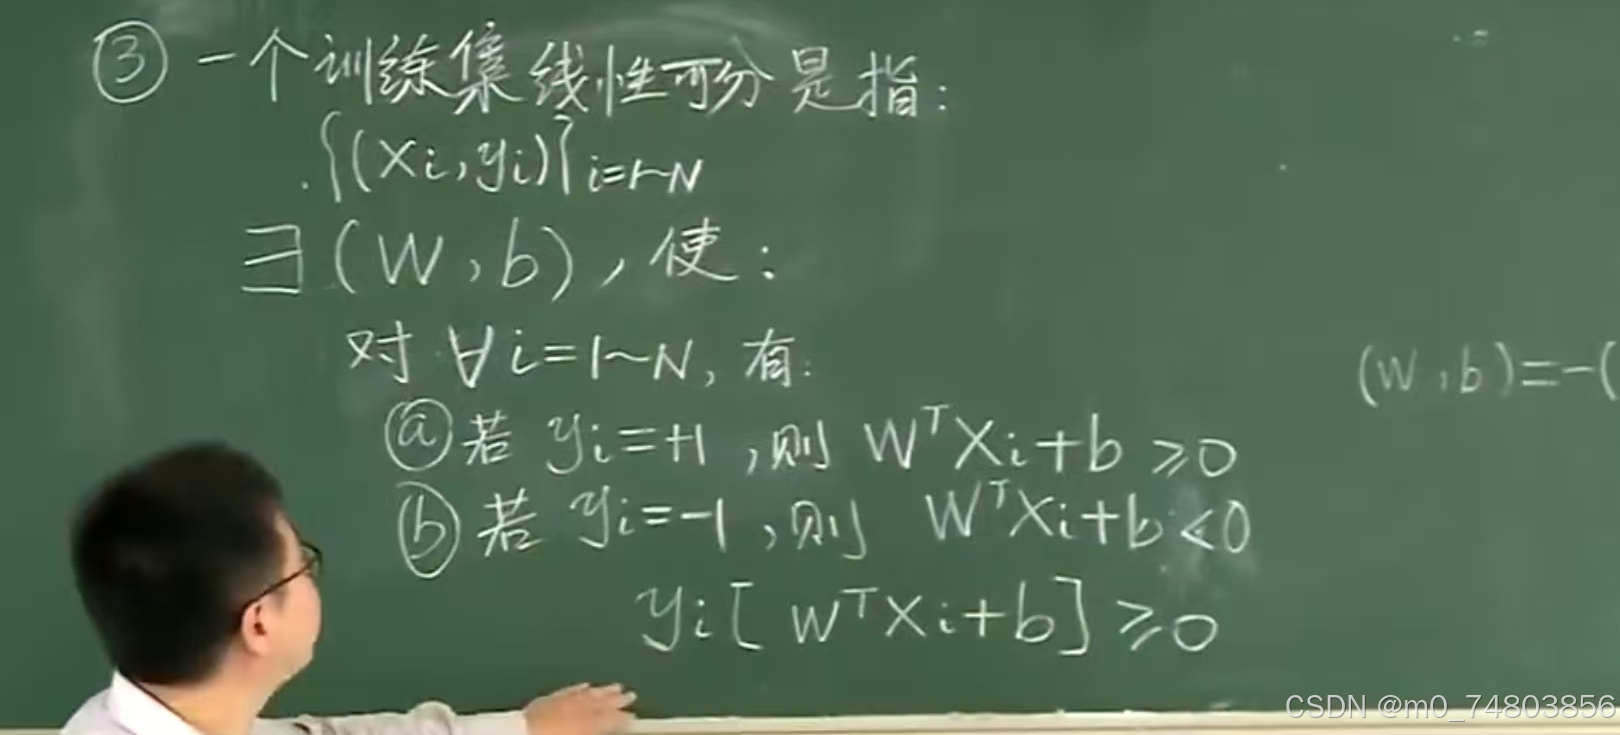 ③ 一个训练集线性可分是指:
{(Xi,yi)}i=1~N
∃(W,b),使:
对∀i=1~N,有:
ⓐ若 yi=+1,则 WᵀXi+b≥0
ⓑ若 yi=-1,则 WᵀXi+b<0
yi[WᵀXi+b]≥0
(W,b)=-(
CSDN @m0_74803856